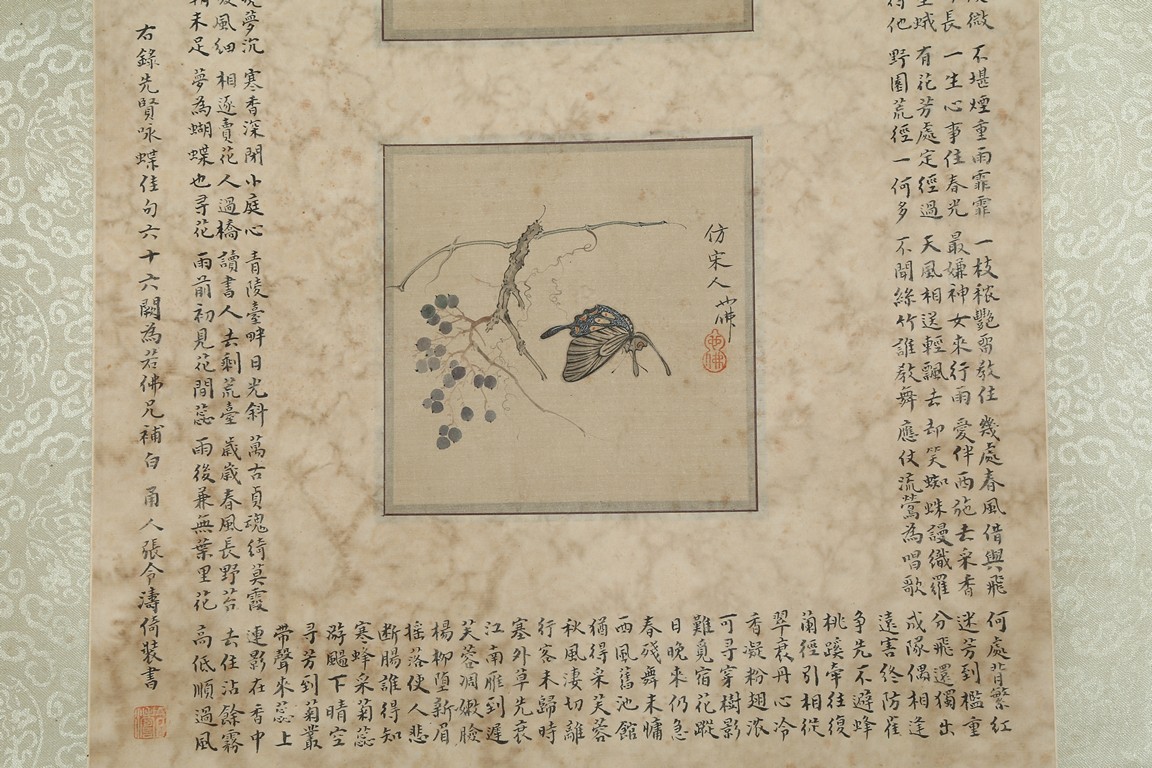 微 不堪煙重雨霏霏 一枝秾艷留教住 幾處春風借與飛
長 一生心事住春光 最嫌神女來行雨 愛伴西施去采香
蛾 有花芳處定經過 天風相送輕飄去 却笑蜘蛛謾織羅
他 野園荒徑一何多 不聞絲竹誰教舞 應仗流鶯為唱歌
何處背繁紅
迷芳到檻重
分飛還獨出
成隊偶相逢
遠害終防雀
爭先不避蜂
桃蹊牽往復
蘭徑引相從
翠裛丹心冷
香凝粉翅浓
可尋穿樹影
難覓宿花蹤
日晚來仍急
春殘舞未慵
西風舊池館
猶得采芙蓉
秋風淒切離
行客未歸時
塞外草先衰
江南雁到遲
芙蓉凋嫩臉
楊柳墮新眉
搖落使人悲
断腸誰得知
寒蜂采菊蕊
游颺下晴空
尋芳到菊叢
帶聲來蕊上
夢沉 寒香深閉小庭心 青陵臺畔日光斜 萬古貞魂綺莫霞 連影在香中
風細 相逐賣花人過橋 讀書人去剩荒臺 歲歲春風長野苔 去住沾餘霧
未足 夢為蝴蝶也尋花 雨前初見花間蕊 雨後兼無葉里花 高低順過風
右錄先賢咏蝶佳句六十六闋為若佛兄補白 甬人張令濤倚裝書
仿宋人 也佛
也佛